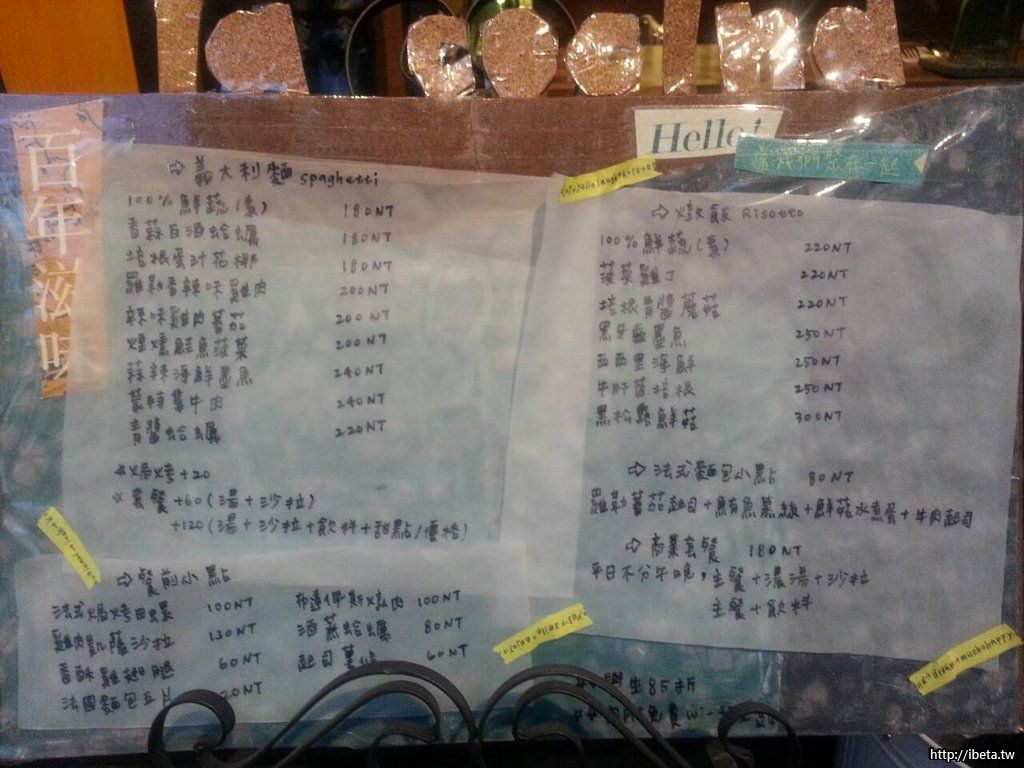 Hello!
百年滋味
⇨ 義大利麵 spaghetti
100%鮮蔬(素) 180NT
香蒜白酒蛤蠣 180NT
培根蛋汁花椰 180NT
羅勒香辣味雞肉 200NT
辣味雞肉蕃茄 200NT
煙燻鮭魚菠菜 200NT
蒜辣海鮮墨魚 240NT
蒙時薯牛肉 240NT
青醬蛤蠣 220NT
*焗烤+20
*套餐+60(湯+沙拉)
+120(湯+沙拉+飲料+甜點/優格)
⇨ 餐前小點
法式焗烤田螺 100NT
雞肉凱薩沙拉 130NT
香酥雞翅腿 60NT
法國麵包五片 20NT
布達佩斯燉肉 100NT
酒蒸蛤蠣 80NT
起司薯條 60NT
⇨ 燉飯 Risotto
100%鮮蔬(素) 220NT
菠菜雞丁 220NT
培根青醬蘑菇 220NT
黑牙齒墨魚 250NT
西西里海鮮 250NT
牛肝菌培根 250NT
黑松露鮮菇 300NT
⇨ 法式麵包小點 80NT
羅勒蕃茄起司+鮪魚慕絲+鮮菇水煮蛋+牛肉起司
⇨ 商業套餐 180NT
平日不分午晚，主餐+濃湯+沙拉
主餐+飲料
**學生85折
http://ibeta.tw